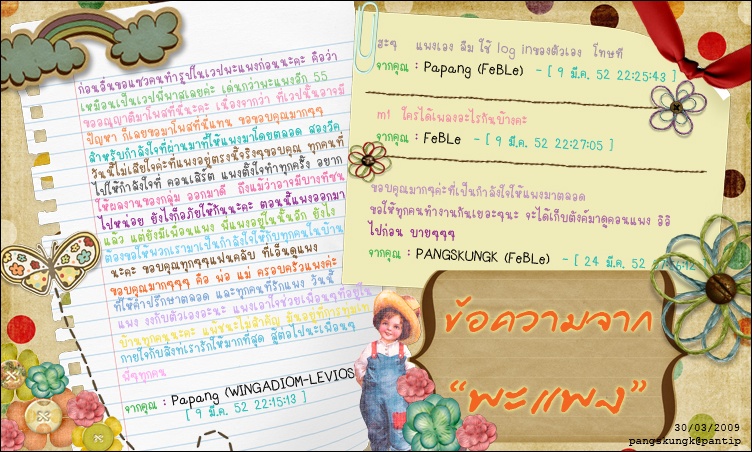 ก่อนอื่นขอแซวคนทำรูปในเวปพะแพงก่อนนะคะ คือว่า
เหมือนเป็นเวปพี่พาสเลยค่ะ เด่นกว่าพะแพงอีก 55
ขออณุญาติมาโพสที่นี่นะคะ เนื่องจากว่า ที่เวปนั้นอาจมี
ปัญหา ก็เลยขอมาโพสที่นี่แทน ขอขอบคุณมากๆๆ
สำหรับกำลังใจที่ผ่านมาที่ให้แพงมาโดยตลอด สองวีค
วันนี้ไม่เสียใจค่ะที่แพงอยู่ตรงนี้จริงๆขอบคุณ ทุกคนที่
ไปให้กำลังใจที่ คอนเสิร์ต แพงตั้งใจทำทุกครั้ง อยาก
ให้ผลงานของกลุ่ม ออกมาดี ถึงแม้ว่าอาจมีบางทีซน
ไปหน่อย ยังไงก็อภัยให้กันนะคะ ตอนนี้แพงออกมา
แล้ว แต่ยังมีเพื่อนแพง พี่แพงอยู่ในนั้นอีก ยังไง
ต้องขอให้พวกเรามาเป็นกำลังใจให้กับทุกคนในบ้าน
นะคะ ขอบคุณทุกๆๆแฟนคลับ ที่เอ็นดูแพง
ขอบคุณมากๆๆๆ คือ พ่อ แม่ ครอบครัวแพงค่ะ
ที่ให้คำปรึกษาตลอด และทุกคนที่รักแพง วันนี้
แพง งงกับตัวเองอะนะ แพงเอาใจช่วยเพื่อนๆที่อยู่ใน
บ้านทุกคนนะคะ แพ้ชนะไม่สำคัญ มันอยู่ที่การทุ่มเท
กายใจกับสิ่งที่เรารักให้มากที่สุด สู้ต่อไปนะเพื่อนๆ
พี่ๆทุกคน
จากคุณ : Papang (WINGADIOM-LEVIOS
[ 9 มี.ค. 52 22:15:13 ]
ฮะๆ แพงเอง ลืม ใช้ log inของตัวเอง โทษที
จากคุณ : Papang (FeBLe) - [ 9 มี.ค. 52 22:25:43 ]
m1 ใครได้เพลงอะไรกันบ้างคะ
จากคุณ : FeBLe - [ 9 มี.ค. 52 22:27:05 ]
ขอบคุณมากๆค่ะที่เป็นกำลังใจให้แพงมาตลอด
ขอให้ทุกคนทำงานกันเยอะๆนะ จะได้เก็บตังค์มาดูคอนแพง อิอิ
ไปก่อน บายๆๆๆ
จากคุณ : PANGSKUNGK (FeBLe) - [ 24 มี.ค. 52
ข้อความจาก
"พะแพง"
30/03/2009
pangskungk@pantip